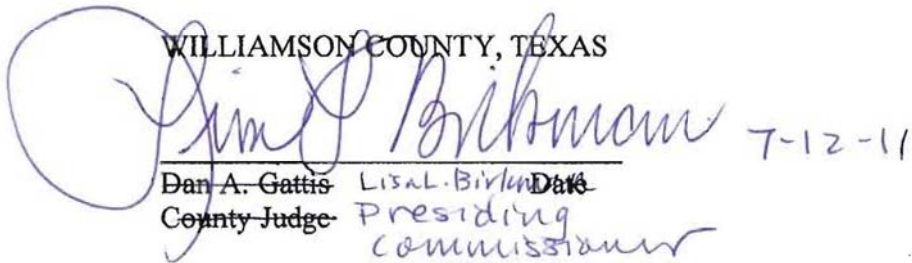 WILLIAMSON COUNTY, TEXAS
Lisa L Birkman 7-12-11
Dan A. Gattis Lisa L. Birkman Date
County Judge Presiding
commissioner